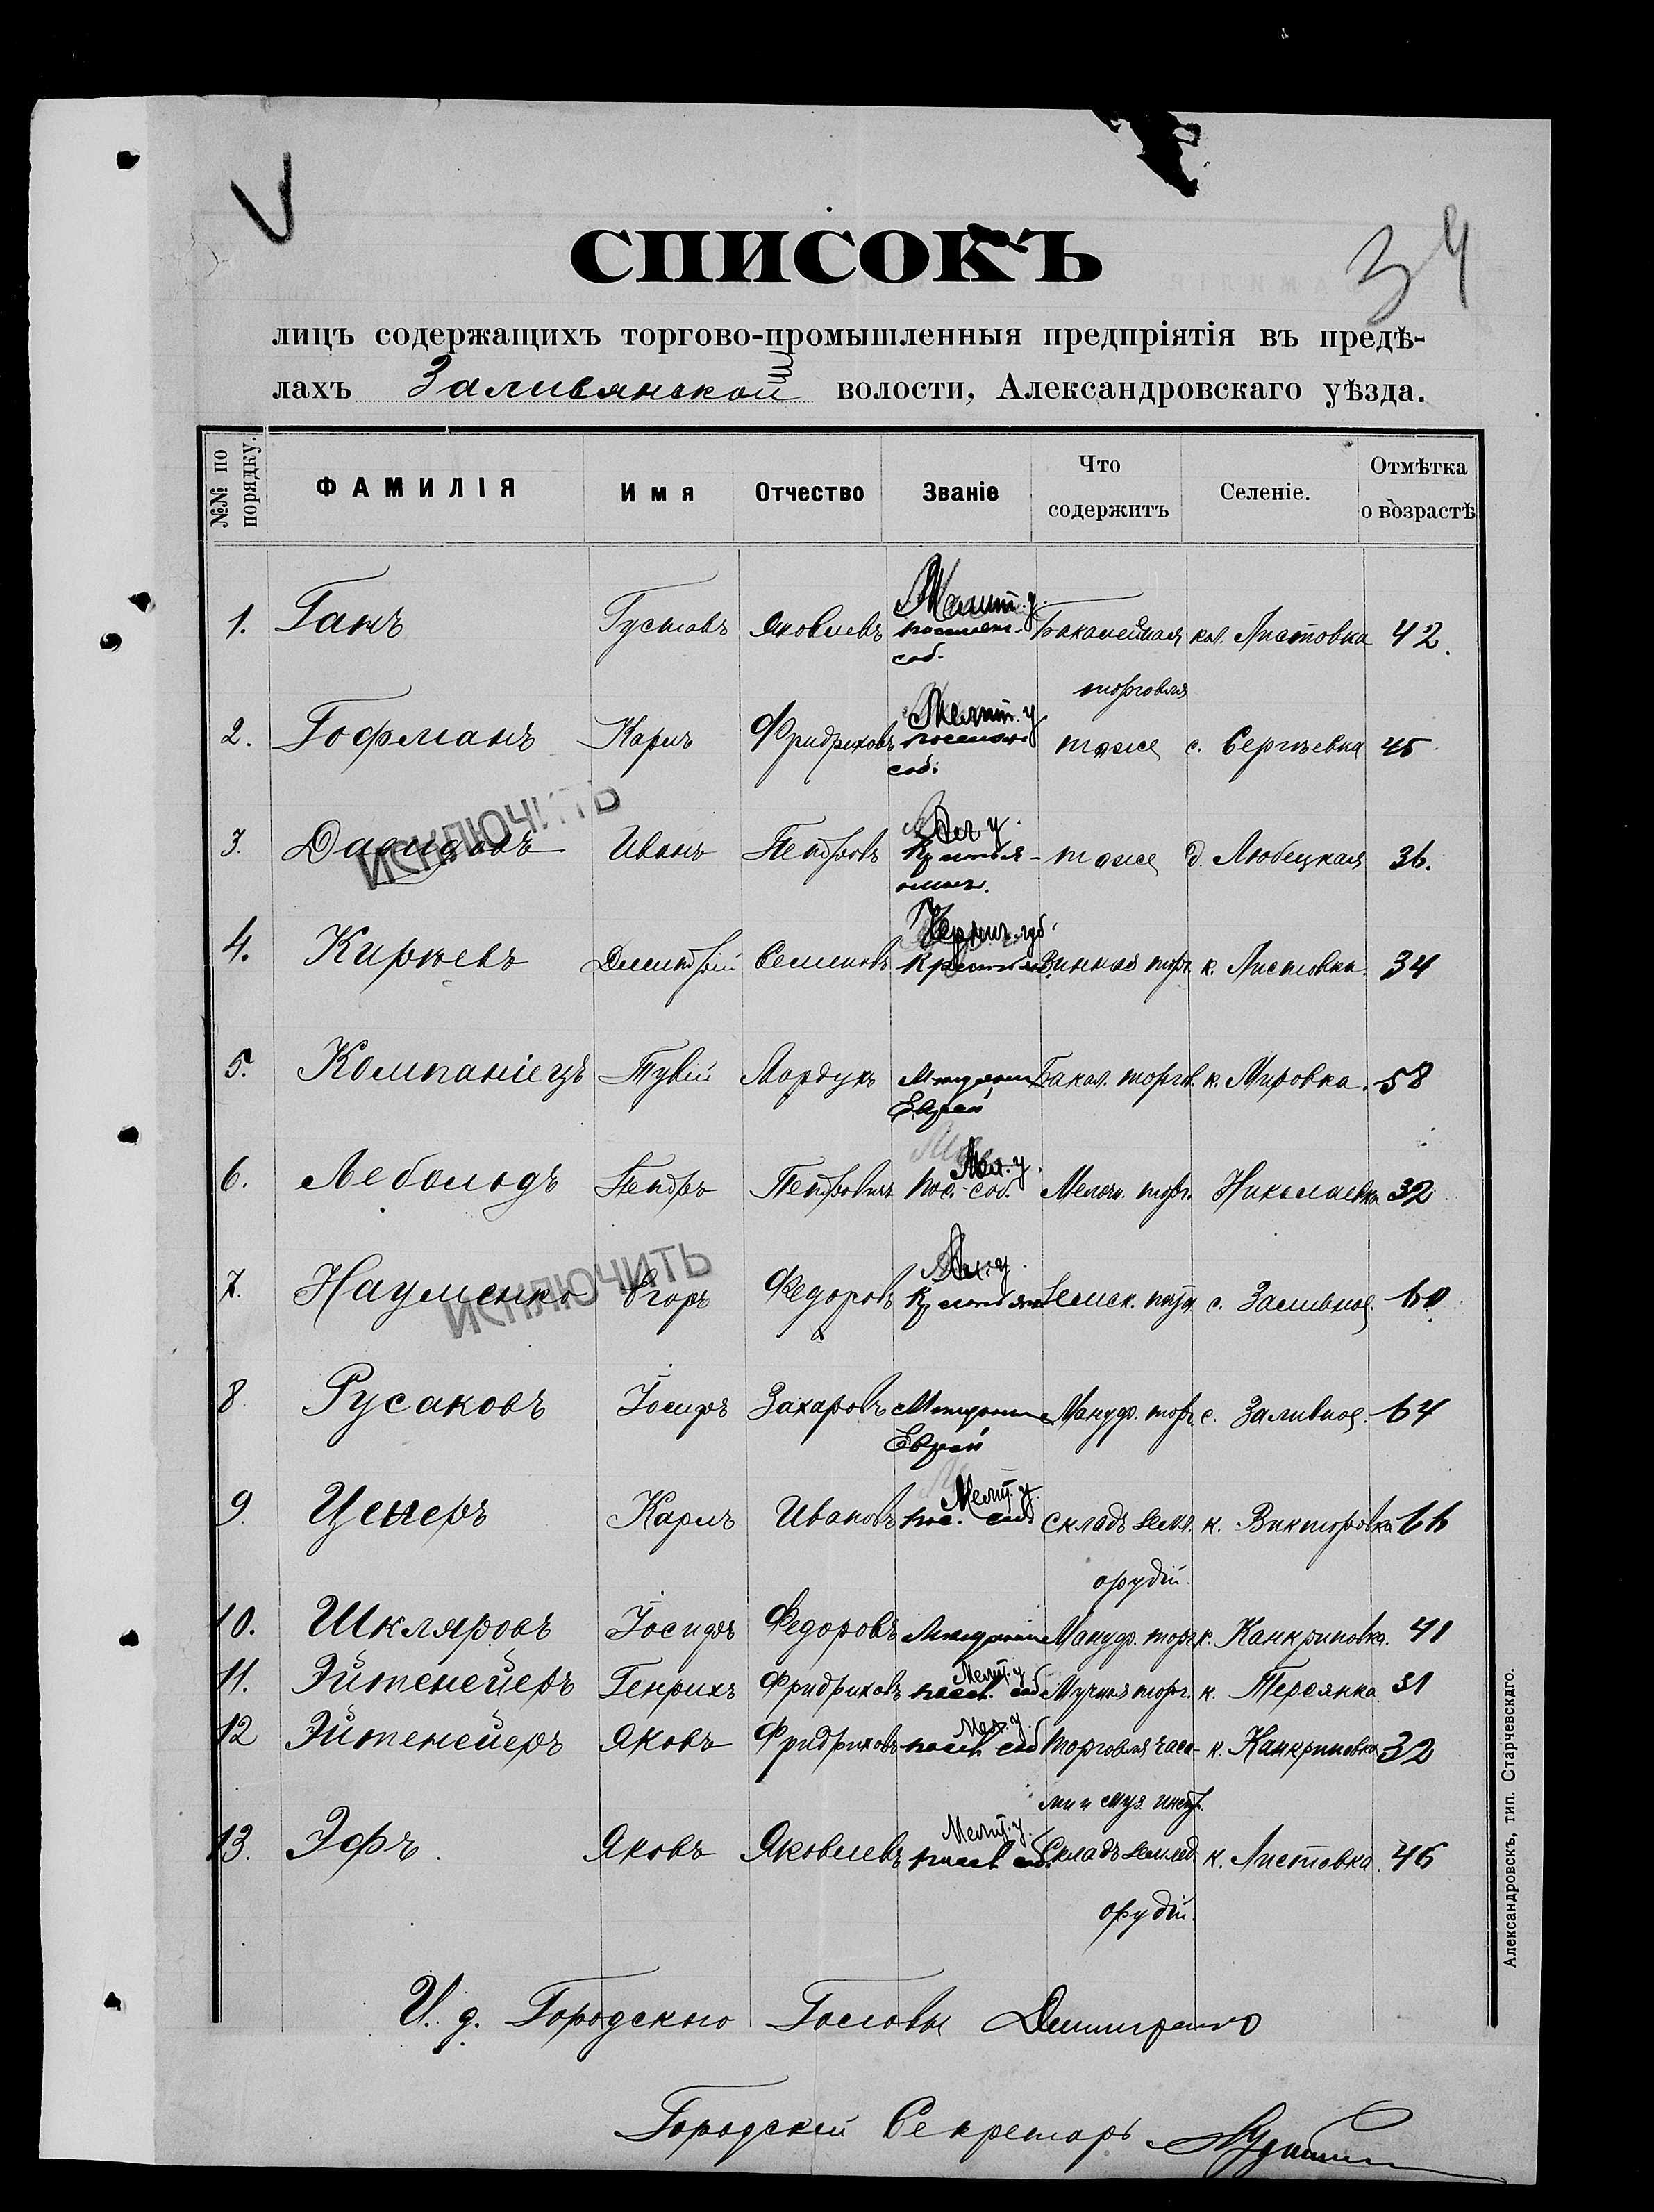 34
СПИСОКЪ
лицъ содержащихъ торгово-промышленныя предпріятія въ предѣ-
лахъ Заливянской волости, Александровскаго уѣзда.
№№ по порядку. ФАМИЛІЯ Имя Отчество Званіе Что содержитъ Селеніе. Отмѣтка о возрастѣ
1. Ганъ Густавъ Яковлевъ Мелит. у. поселян. соб. Бакалейная торговля кол. Листовка 42.
2. Гофманъ Карлъ Фридриховъ Мелит. у поселян. соб. тоже с. Сергѣевка 45
3. Давидовъ Иванъ Петровъ у. Крестья-нинъ. тоже д. Любецкая 36.
ИСКЛЮЧИТЬ
4. Киржевъ Дмитрій Семеновъ губ. Крестьян. Винная торг. к. Листовка. 34
5. Компаніецъ Тувій Мордухъ Мещанин Еврей Бакал. торгов. к. Мировка. 58
6. Лебольдъ Петръ Петровичъ Мел. у. пос. соб. Мелочн. торг. Николаевка 32
7. Науменко Егоръ Федоровъ у. Крестьянин с. Заливное. 60
ИСКЛЮЧИТЬ
8 Русаковъ Іосифъ Захаровъ Мещанин Еврей Мануф. торг. с. Заливное. 64
9. Ценеръ Карлъ Ивановъ Мелит. у. пос. соб. Складъ земл. орудій. к. Викторовка 66
10. Шкляровъ Іосифъ Федоровъ Мещанин Мануф. торг. к. Канкриновка. 41
11. Эйтенейеръ Генрихъ Фридриховъ Мелит. у посел. соб. Мучная торг. к. Терсянка 31
12 Эйтенейеръ Яковъ Фридриховъ Мел. у. посел. соб. Торговля часа-ми и муз. инстр. к. Канкриновка 32
13. Эфъ Яковъ Яковлевъ Мелит. у. посел. соб. Складъ землед. орудій. к. Листовка. 45
И. д. Городского Головы
Городской Секретарь
Александровскъ, тип. Старчевскдго.